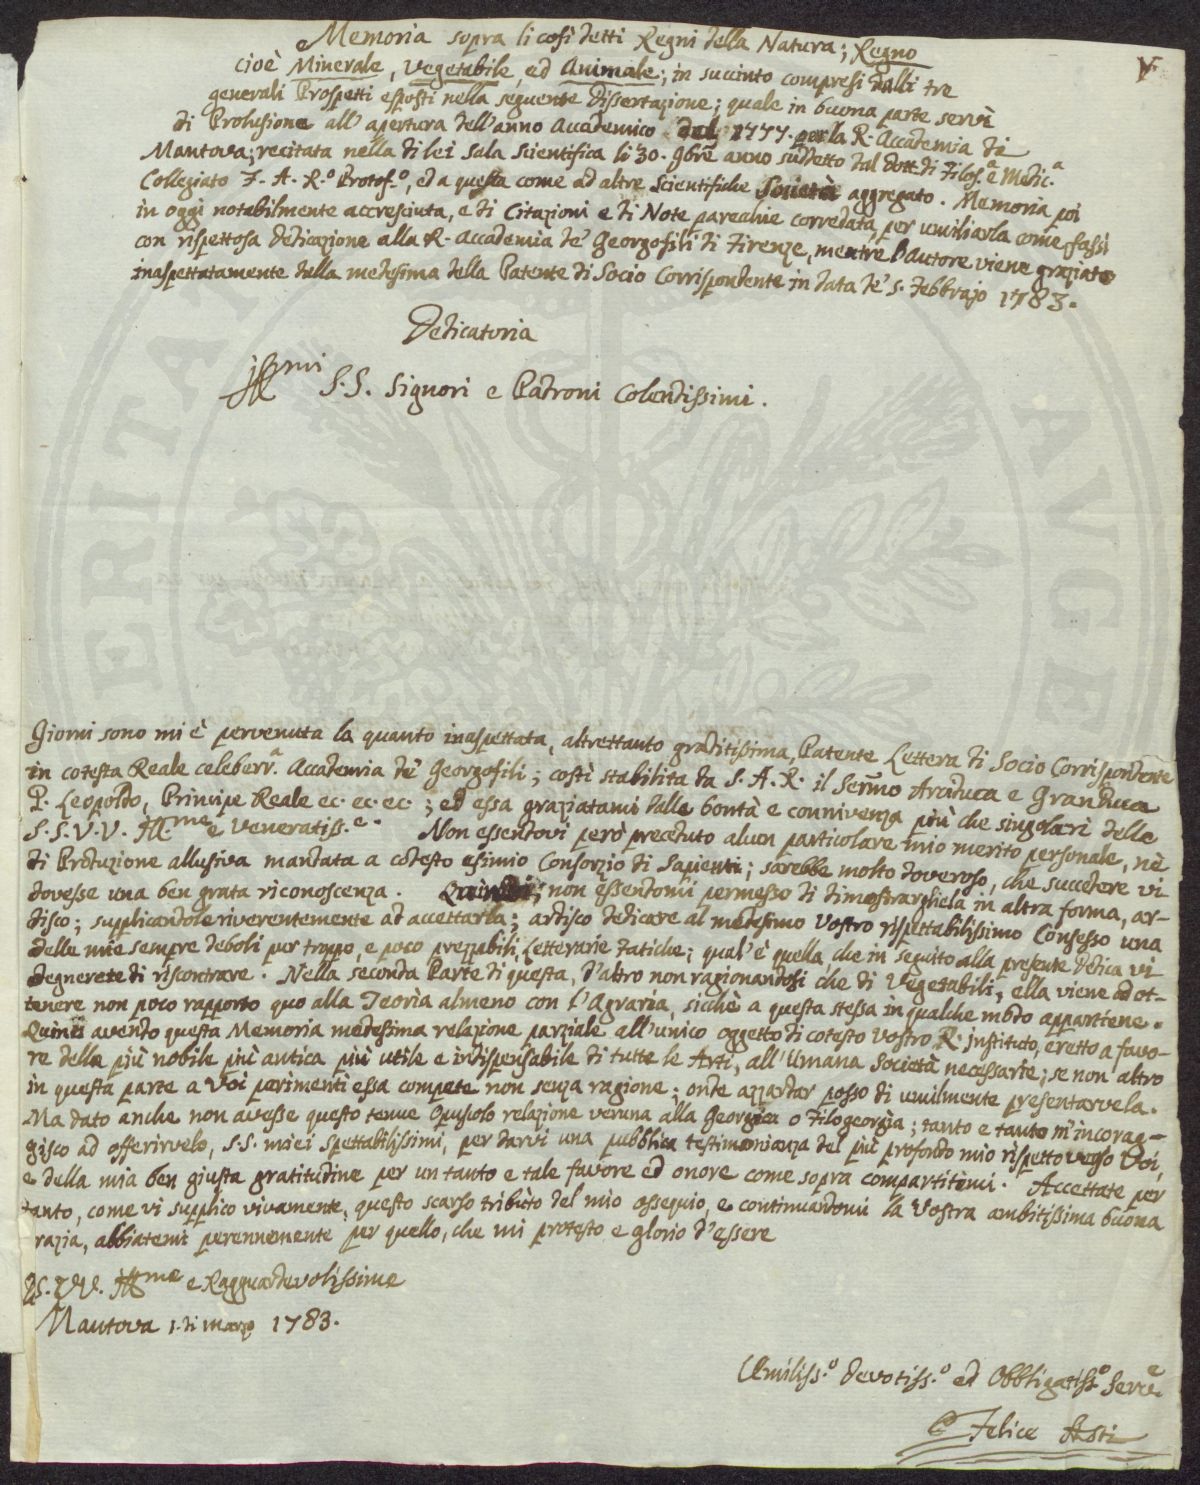 Memoria sopra li così detti Regni della Natura; Regno
cioè Minerale, Vegetabile, ed Animale; in succinto compresi dalli tre
generali Prospetti esposti nella seguente Dissertazione; quale in buona parte servì
di Prolusione all'apertura dell'anno Accademico del 1777. per la R. Accademia di
Mantova; recitata nella di lei sala scientifica li 30. 9bre anno suddetto dal dott. di Filos.a e Medic.a
Collegiato F. A. R.o Protof.o, ed a questa come ad altre scientifiche Società aggregato. Memoria poi
in oggi notabilmente accresciuta, e di Citazioni e di Note parecchie corredata, per umiliarla come fassi
con rispettosa dedicazione alla R. Accademia de' Georgofili di Firenze, mentre l'autore viene graziato
inaspettatamente della medesima della Patente di Socio Corrispondente in data de' 5. Febbrajo 1783.
Dedicatoria
Illmi S.S. Signori e Padroni Colendissimi.
Giorni sono mi è pervenuta la quanto inaspettata, altrettanto graditissima, Patente Lettera di Socio Corrispondente
in cotesta Reale celeberr.a Accademia de' Georgofili; costì stabilita da S. A. R. il Sermo Arciduca e Granduca
P. Leopoldo, Principe Reale ec. ec. ec.; ed essa graziatami dalla bontà e connivenza più che singolari delle
S.S.V.V. Ill.me e Veneratiss.e. Non essendovi però preceduto alcun particolare mio merito personale, nè
di Produzione allusiva mandata a cotesto esimio Consorzio di Sapienti; sarebbe molto doveroso, che succedere vi
dovesse una ben grata riconoscenza. Quindi; non essendomi permesso di dimostrargliela in altra forma, ar-
disco; supplicandole riverentemente ad accettarla; ardisco dedicare al medesimo Vostro rispettabilissimo Consesso una
delle mie sempre deboli pur troppo, e poco prezzabili, Letterarie Fatiche; qual'è quella, che in seguito alla presente Dedica vi
degnerete di riscontrare. Nella seconda Parte di questa, d'altro non ragionandosi che di Vegetabili, ella viene ad ot-
tenere non poco rapporto quo alla Teoria almeno con l'Agraria, sicchè a questa stessa in qualche modo appartiene.
Quindi avendo questa Memoria medesima relazione parziale all'unico oggetto di cotesto Vostro R. Instituto, eretto a favo-
re della più nobile più antica più utile e indispensabile di tutte le Arti, all'Umana Società necessarie; se non altro
in questa parte a Voi parimenti essa compete non senza ragione; onde azzardar posso di umilmente presentarvela.
Ma dato anche non avesse questo tenue Opuscolo relazione veruna alla Georgica o Filogeorgia; tanto e tanto m'incorag-
gisco ad offerirvelo, S.S. miei spettabilissimi, per darvi una pubblica testimonianza del più profondo mio rispetto verso Voi,
e della mia ben giusta gratitudine per un tanto e tale favore ed onore come sopra compartitimi. Accettate per
tanto, come vi supplico vivamente, questo scarso tributo del mio ossequio, e continuandomi la Vostra ambitissima buona
razia, abbiatemi perennemente per quello, che mi protesto e glorio d'essere
S. VV. Illme e Ragguardevolissime
Mantova 1. di marzo 1783.
Umiliss.o devotiss.o ed Obbligatiss.o Serve
Felice Asti
ERITA
AVGE